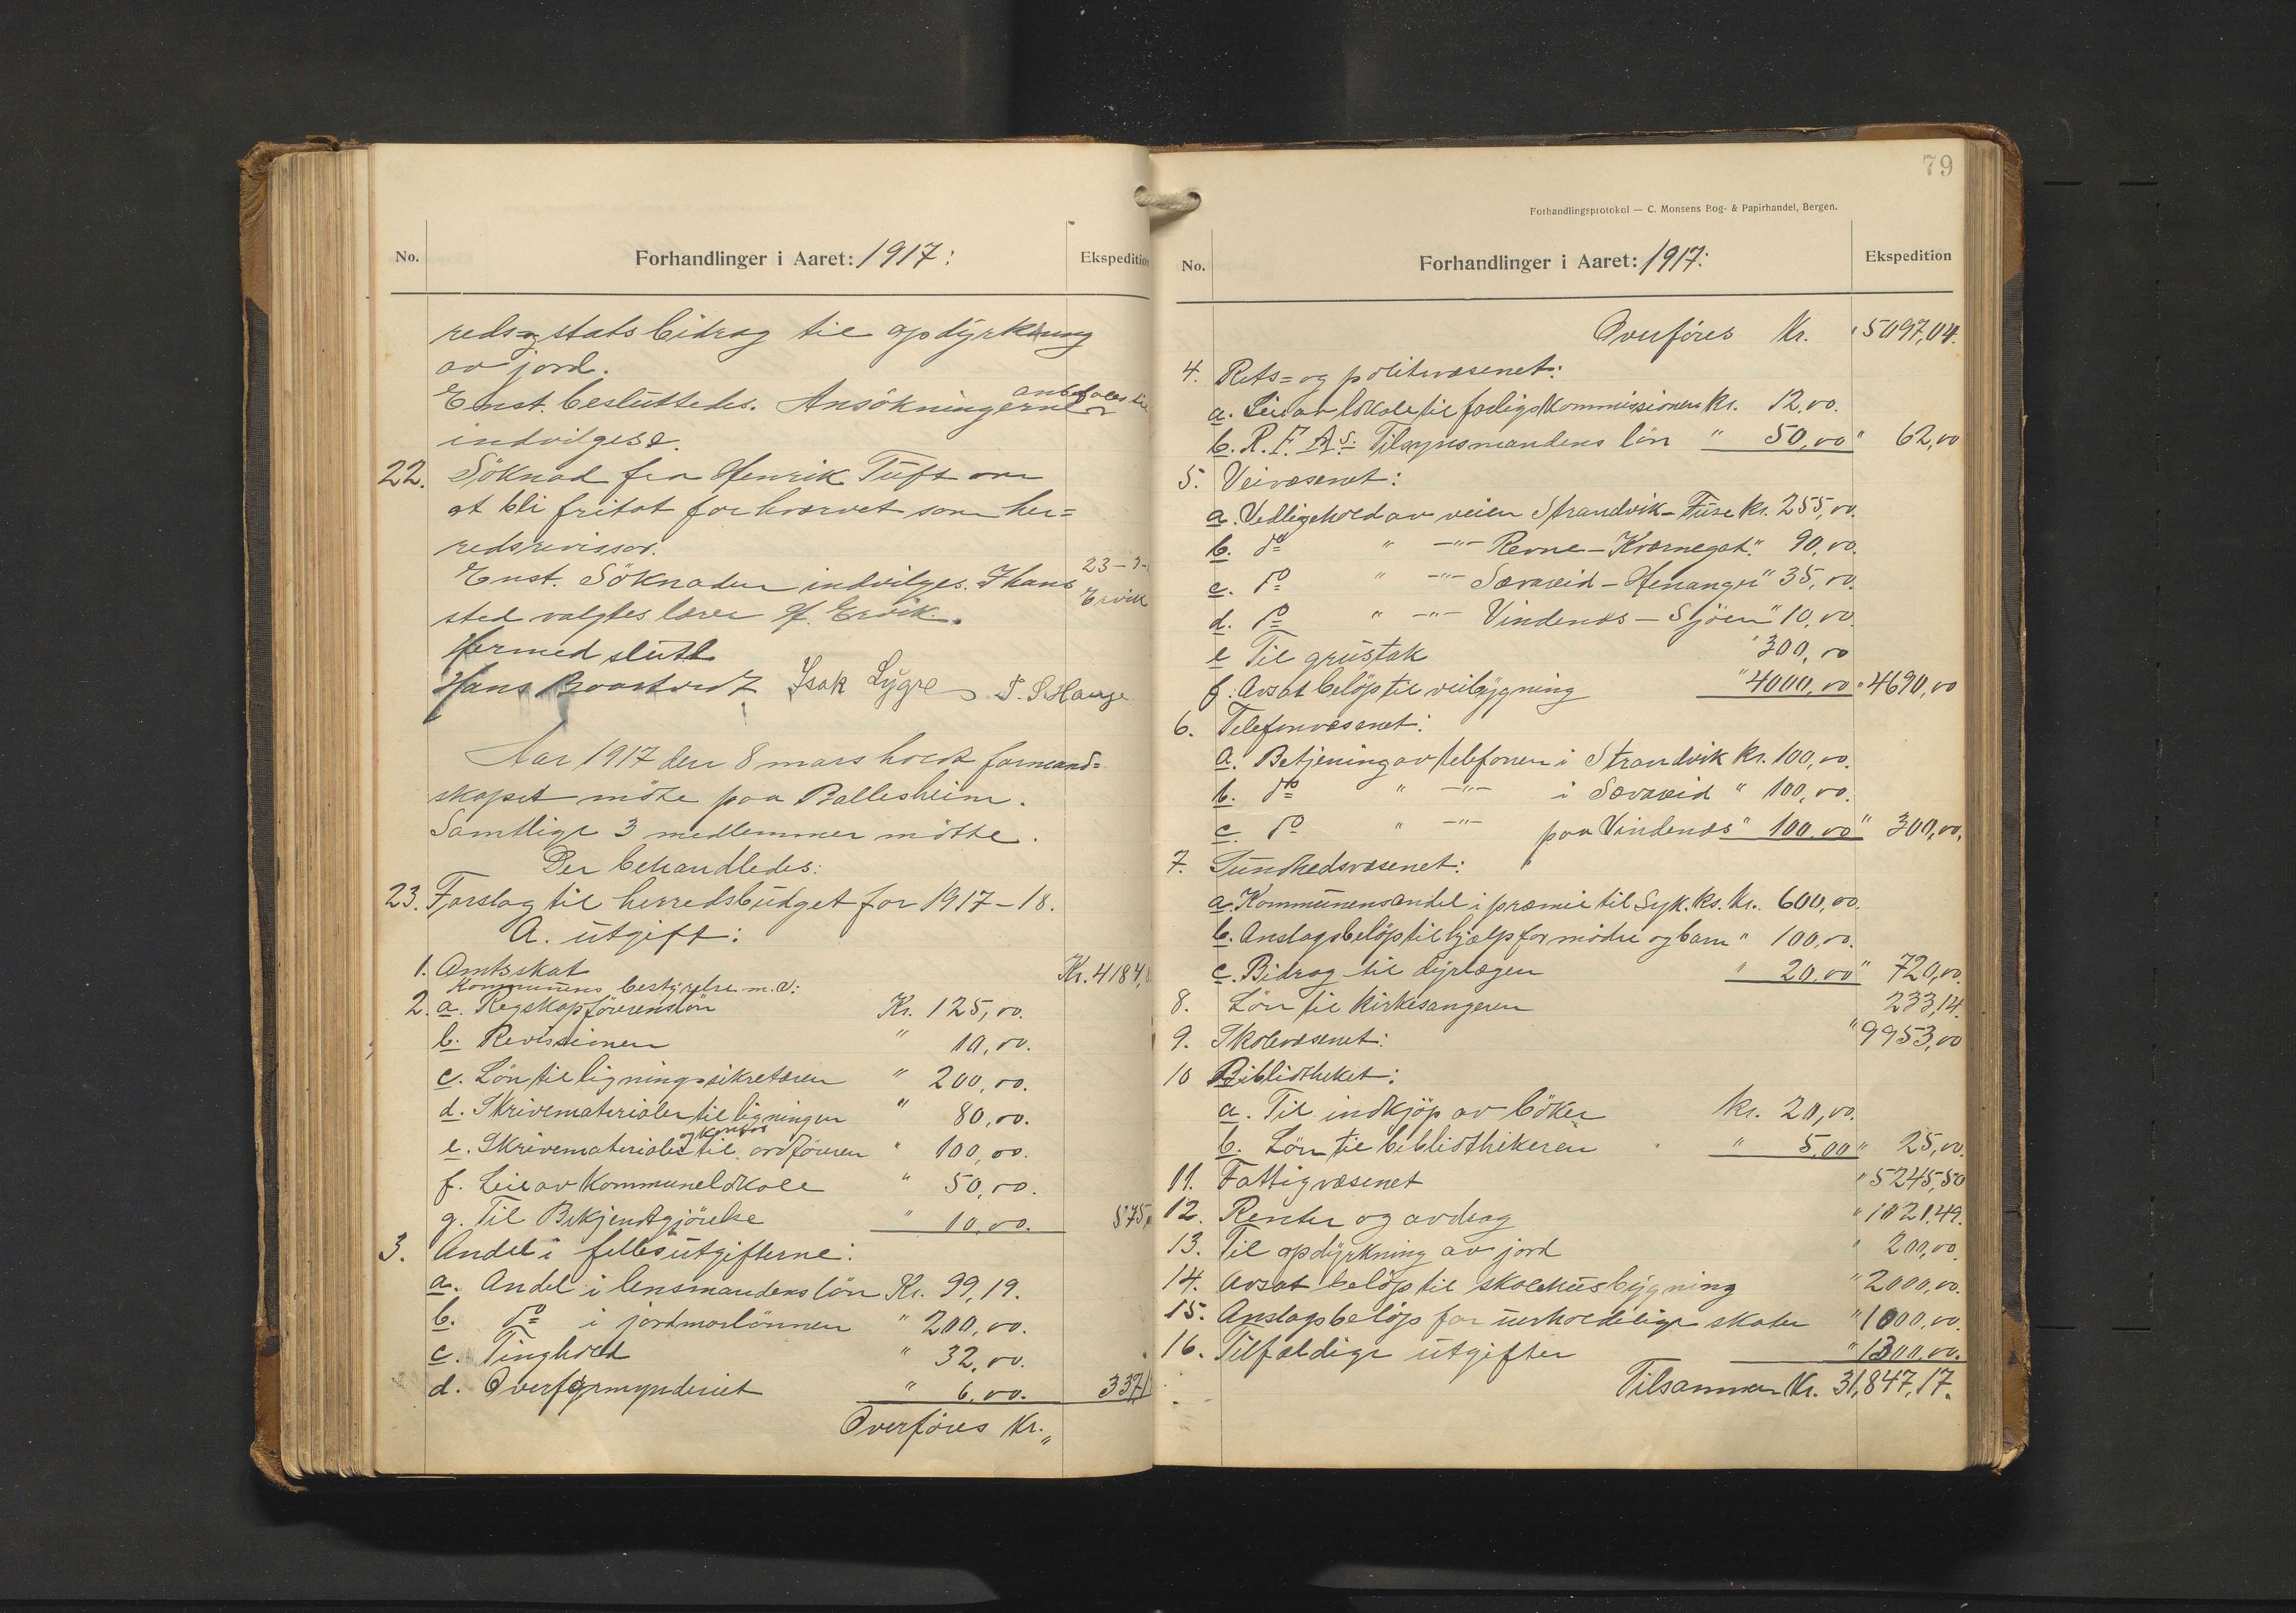 No.
Forhandlinger i Aaret: 1917:
Ekspedition
reds- og statsbidrag til opdyrkning
av jord.
Enst. besluttedes. Ansökningerne anbefales til
indvilgese.
22. Söknad fra Henrik Tuft om
at bli fritat for hvervet som her=
redsrevissor.
Enst. Söknaden indvilges. I hans
23-3-
sted valgtes lærer H. Ervik.
Ervik
Hermed slutt
Hans Isak Lygre S. Hauge
Aar 1917 den 8 mars holdt formand=
skapet möte paa Ballesheim.
Samtlige 3 medlemmer mötte.
Der behandledes:
23. Forslag til herredsbudget for 1917-18.
A. utgift:
1. Amtsskat Kr. 4184,
Kommunens bestyrelse m.v:
2. a. Regskapförerens lön Kr. 125,00.
b. Revissionen " 10,00.
c. Lön til ligningssikretæren " 200,00.
d. Skrivematerialer til ligningen " 80,00.
e. Skrivematerialer og kontor til ordföreren " 100,00.
f. Leie av Kommunelokale " 50,00.
g. Til Bekjendtgjörelse " 10,00. 575,
3. Andel i fellesutgifterne:
a. Andel i lensmandens lön Kr. 99,19.
b. do i jordmorlönnen " 200,00.
c. Tinghold " 32,00.
d. Overformynderiet " 6,00. 337,1
Overföres Kr. "
79
Forhandlingsprotokol — C. Monsens Bog- & Papirhandel, Bergen.
No.
Forhandlinger i Aaret: 1917:
Ekspedition
Overföres Kr. 5097,04.
4. Rets= og politivæsenet:
a. Leie av lokale til forligskommissionen Kr. 12,00.
b. R. F. A s: Tilsynsmandens lön " 50,00 " 62,00
5. Veivæsenet:
a. Vedligehold av veien Strandvik-Fuse kr. 255,00.
b. do " -"- Revne-Kvernegot " 90,00.
c. do " -"- Sævareid-Henanger " 35,00.
d. do " -"- Vindenes-Sjöen " 10,00.
e Til grustak " 300,00
f. Avsat belöp til veibygning " 4000,00 " 4690,00
6. Telefonvæsenet:
a. Betjening av telefonen i Strandvik kr. 100,00.
b. do " -"- i Sævareid " 100,00.
c. do " -"- paa Vindenes " 100,00 " 300,00.
7. Sundhedsvæsenet:
a. Kommunens andel i præmie til Syk. ks. Kr. 600,00.
b. Anslagsbelöp til hjælp for mödre og barn " 100,00.
c. Bidrag til dyrlægen " 20,00 " 720,00.
8. Lön til kirkesangeren 233,14.
9. Skolevæsenet: " 9953,00
10 Bibliotheket:
a. Til indkjöp av böker kr. 20,00.
b. Lön til bibliothikeren " 5,00 " 25,00.
11. Fattigvæsenet " 5245,50
12. Renter og avdrag " 1021,49.
13. Til opdyrkning av jord " 200,00.
14. Avsat belöp til skolehusbygning " 2000,00.
15. Anslagsbelöp for uerholdelige skater " 1000,00.
16. Tilfældige utgifter " 1300,00.
Tilsammen Kr. 31,847,17.